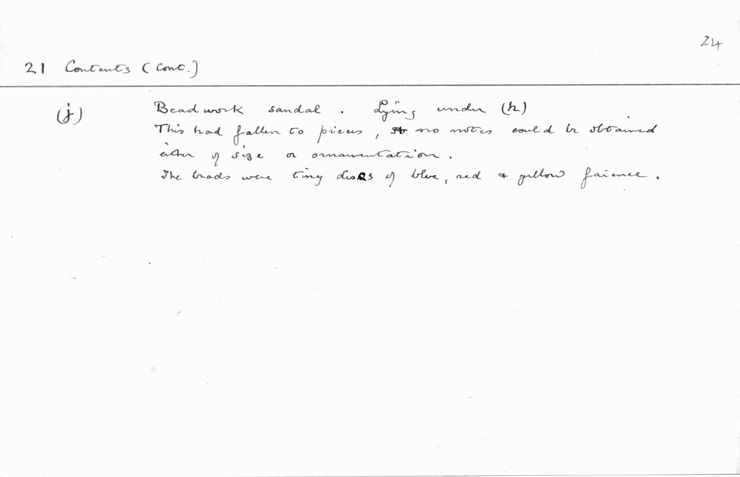 24
21 Contents (Cont.)
(j) Beadwork sandal. Lying under (h)
This had fallen to pieces, & no notes could be obtained
either of size or ornamentation.
The beads were tiny discs of blue, red & yellow faience.